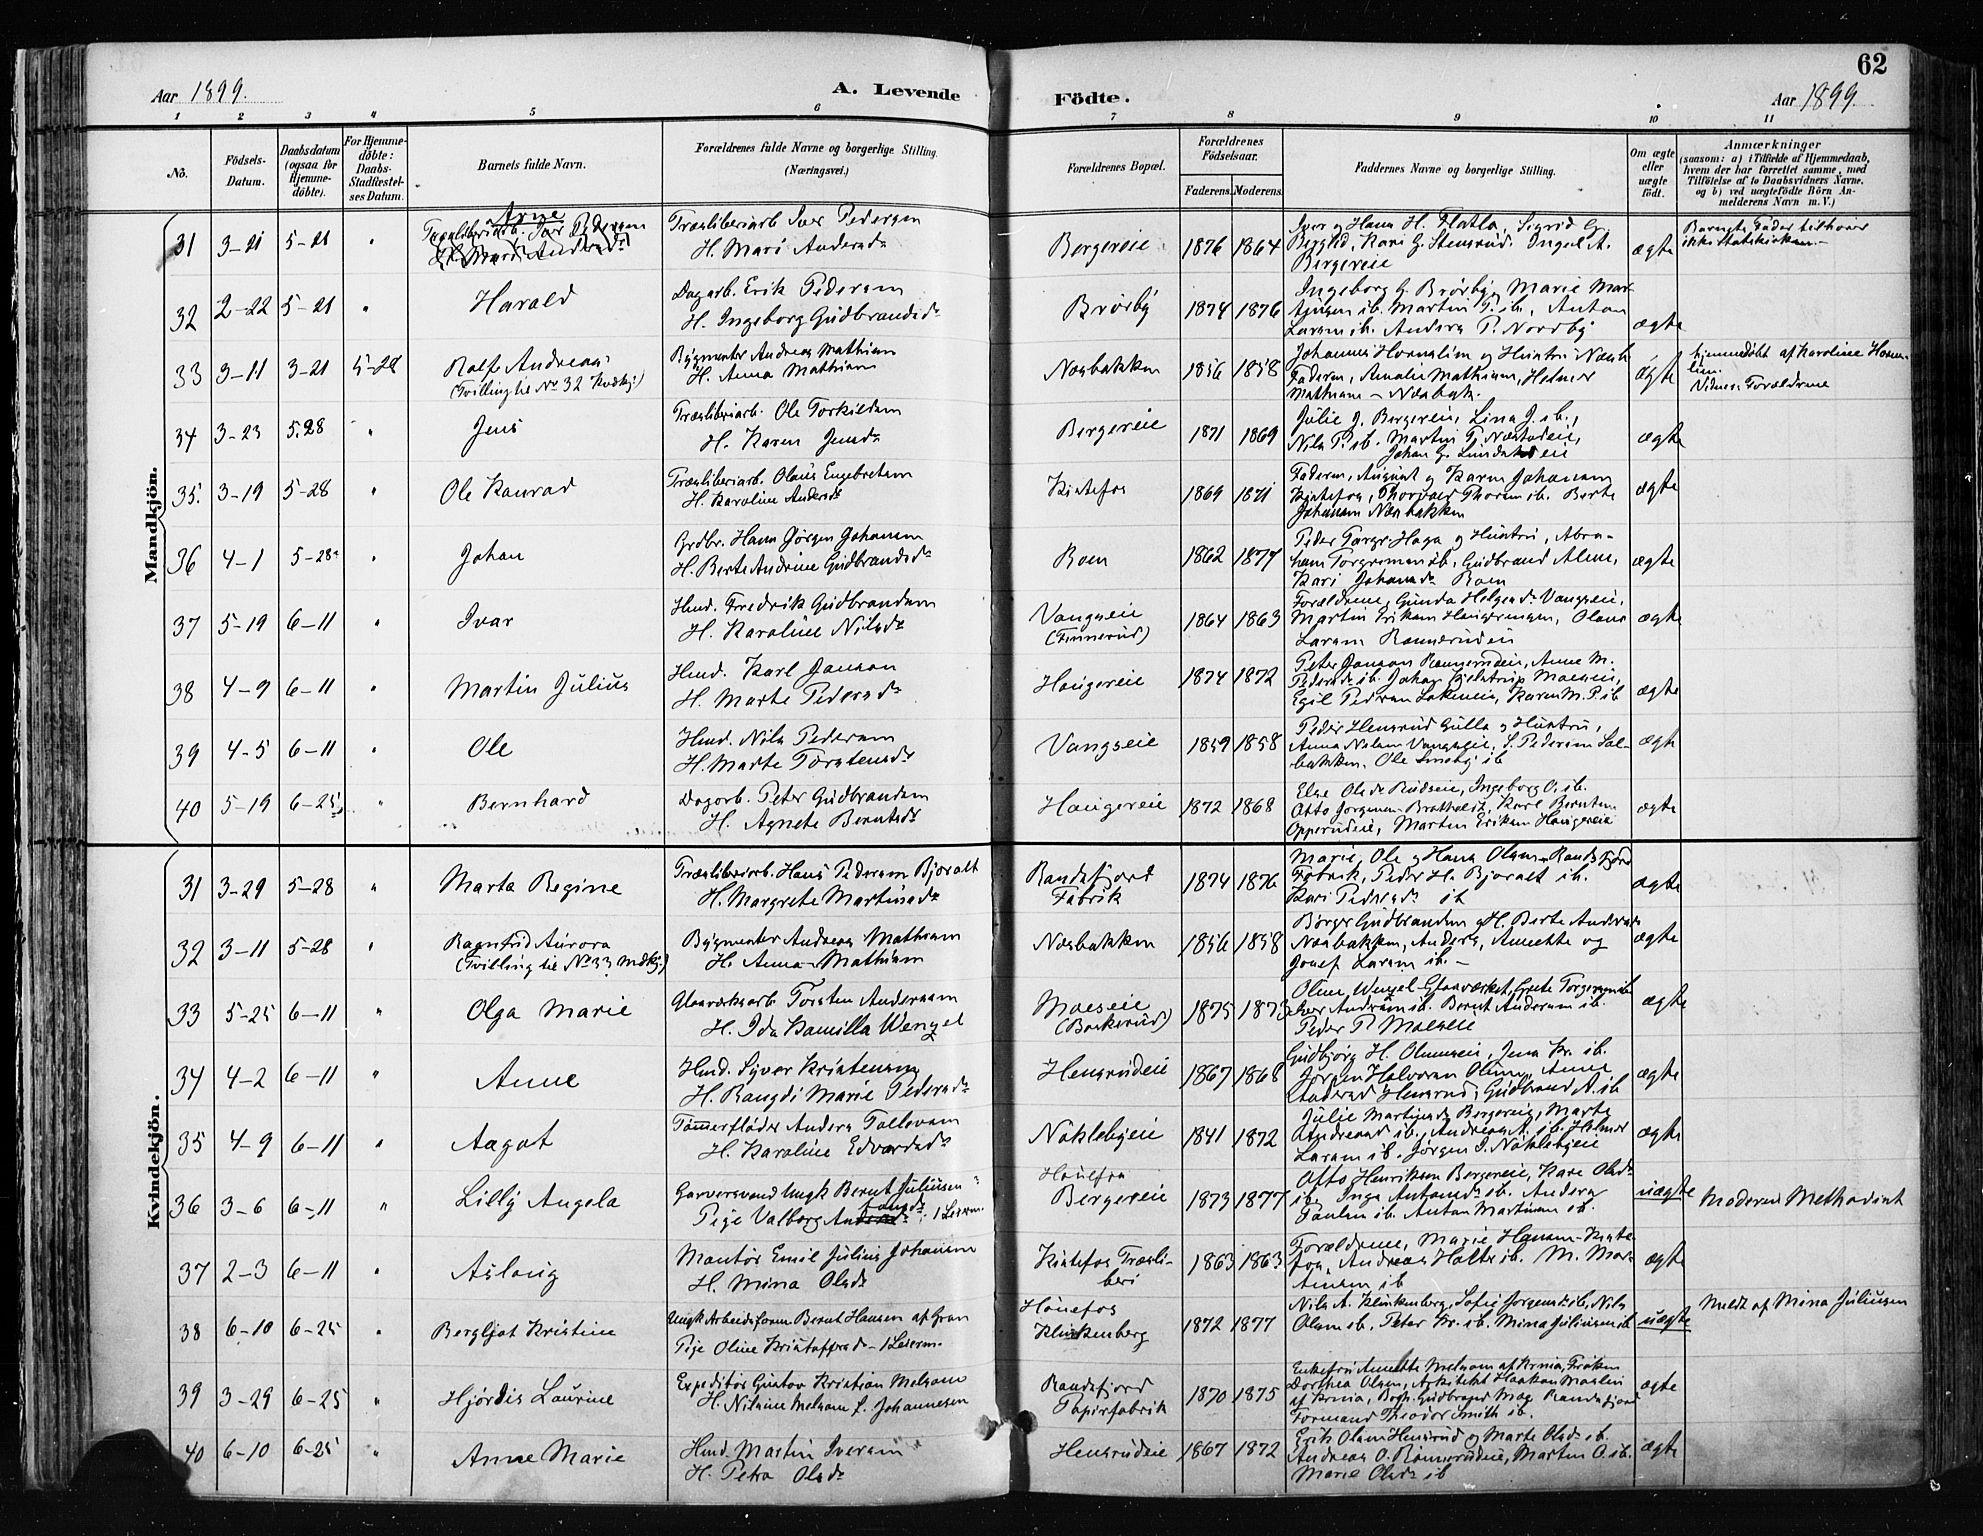 62
Aar 1899.
A. Levende
Födte.
Aar 1899.
1 2 3 4 5 6 7 8 9 10 11
No.
Födsels-Datum.
Daabsdatum (ogsaa for Hjemme-döbte).
For Hjemme-döbte: Daabs-Stadfæstel-ses Datum.
Barnets fulde Navn.
Forældrenes fulde Navne og borgerlige Stilling. (Næringsvei.)
Forældrenes Bopæl.
Forældrenes Födselsaar.
Faderens. Moderens.
Faddernes Navne og borgerlige Stilling.
Om ægte eller uægte födt.
Anmærkninger
(saasom: a) i Tilfælde af Hjemmedaab,
hvem der har forrettet samme, med
Tilföielse af to Daabsvidners Navne.
og b) ved uægtefödte Börn An-
melderens Navn m. V.)
Mandkjön.
31 3-21 5-21 " Arne
Træsliberiarb. Iver Pedersen
H. Mari Andersdr
Bergereie 1876 1864
Iver og Hans H. Flatla, Sigrid G.
Berglid, Kari G. Stensrud. Ingel A.
Bergereie
ægte
Barnets Fader tilhører
ikke Statskirken. -
32 2-22 5-21 " Harald
Dagarb. Erik Pedersen
H. Ingeborg Gudbrandsdr
Brørby 1874 1876
Ingeborg G. Brørby, Marie Mar-
tinsen ib. Martin P. ib., Anton
Larsen ib. Anders P. Nordby
ægte
33 3-11 3-21 5-28 Rolf Andreas
(Tvilling til No 32 Kvdkj:)
Bygmester Andreas Mathisen
H. Anna Mathisen
Næsbakken 1856 1858
Johannes Hornslien og Hustru Næsb.
Faderen, Amalie Mathisen, Helmer
Mathisen - Næsbak.
ægte
Hjemmedøbt af Karoline Horns-
lien.
Vidner: Forældrene
34 3-23 5-28 " Jens
Træsliberiarb. Ole Torkildsen
H. Karen Jensdr
Bergereie 1871 1869
Julie J. Bergereie, Lina J. ib.,
Nils P. ib. Martin P. Næstadeie,
Johan G. Lundstadeie
ægte
35. 3-19 5-28 " Ole Konrad
Træsliberiarb. Olaus Engebretsen
H. Karoline Andersdr
Kistefos 1869 1871
Faderen, August og Karen Johansen
Kistefos, Thorvald Thorsen ib. Berte
Johansen Næsbakken
ægte
36 4-1 5-28 " Johan
Grdbr. Hans Jørgen Johansen
H. Berte Andrine Gudbrandsdr
Roen 1862 1877
Peder Torgr. Haga og Hustru, Abra-
ham Torgersen ib, Gudbrand Alme,
Kari Johansdr Roen
ægte
37 5-19 6-11 " Ivar
Husmd. Fredrik Gudbrandsen
H. Karoline Nilsdr
Vangseie
(Finnerud) 1864 1863
Forældrene, Gunda Helgesdr Vangseie,
Martin Eriksen Haugerengen, Olaus
Larsen Rannerudeie
ægte
38 4-9 6-11 " Martin Julius
Husmd. Karl Jonson
H. Marte Pedersdr
Haugereie 1874 1872
Peter Jonson Rannerudeie, Anne M.
Pedersdr ib. Johan Hjelstrup Moeseie,
Egil Pedersen Lokeneie, Karen M. P. ib
ægte
39 4-5 6-11 " Ole
Husmd. Nils Pedersen
H. Marte Torstensdr
Vangseie 1859 1858
Peder Hensrud Gulla og Hustru,
Anna Nilsen Vangseie, S. Pedersen Sol-
bakken. Ole Smeby ib
ægte
40 5-19 6-25 " Bernhard
Dagarb. Peter Gudbrandsen
H. Agnete Berntsdr
Haugereie 1872 1868
Else Olsdr Rudseie, Ingeborg O. ib.
Otto Jørgensen Bratvold, Karl Berntsen
Opperudeie, Martin Eriksen Haugereie
ægte
Kvindekjön.
31 3-29 5-28 " Marta Regine
Træsliberiarb. Hans Pedersen Bjoralt
H. Margrete Martinsdr
Randsfjord
Fabrik 1874 1876
Marie, Ole og Hans Olsen Randsfjord
Fabrik, Peder H. Bjoralt ib.
Kari Pedersdr ib
ægte
32 3-11 5-28 " Ragnfrid Aurora
(Tvilling til No 33 Mdkj:)
Bygmester Andreas Mathisen
H. Anna Mathisen
Næsbakken 1856 1858
Børger Gudbrandsen og H. Berte Andersdr
Næsbakken, Anders, Annette og
Josef Larsen ib. -
ægte
33 5-25 6-11 " Olga Marie
Glasværksarb Torsten Andersen
H. Ida Kamilla Wenzel
Moeseie
(Bakkerud) 1875 1873
Oline Wenzel Glasværket, Grete Torgersen ib
Iver Andersen ib. Bernt Andersen ib.
Peder P. Moeseie
ægte
34 4-2 6-11 " Anne
Husmd. Syver Kristensen
H. Rangdi Marie Pedersdr
Hensrudeie 1867 1868
Gudbjørg H. Olumseie, Jens Kr. ib.
Jørgen Halvorsen Olum, Anne
Andersdr Hensrud, Gudbrand A. ib
ægte
35 4-9 6-11 " Aagot
Tømmerfløder Anders Tollevsen
H. Karoline Edvardsdr
Noklebyeie 1841 1872
Julie Martinsdr Bergereie, Marte
Andreasdr ib. Andreas A. ib. Helmer
Larsen ib. Jørgen I. Noklebyeie
ægte
36 3-6 6-11 " Lilly Angela
Garversvend Ungk Bernt Juliusen
Pige Valborg 1 Leierm.
Hønefos
Bergereie 1873 1877
Otto Henriksen Bergereie, Kare Olsdr
ib, Inga Antonsdr ib. Anders
Paulsen ib. Anton Martinsen ib.
uægte
Moderen Methodist
37 2-3 6-11 " Aslaug
Montør Emil Julius Johansen
H. Mina Olsdr
Kistefos Træsli-
beri 1863 1863
Forældrene, Marie Hansen Kiste-
fos, Andreas Halter ib. M. Mar-
tinsen ib
ægte
38 6-10 6-25 " Bergljot Kristine
Ungk Arbeidsform Bernt Hansen af Gran
Pige Oline Kristoffersdr - 1 Leierm.
Hønefos
Klinkenberg 1872 1877
Nils A. Klinkenberg, Sofie Jørgensdr ib, Nils
Olsen ib, Peter Kr. ib. Mina Juliusen ib
uægte
Meldt af Mina Juliusen
39 3-29 6-25 " Hjørdis Laurine
Expeditør Gustav Kristian Melsom
H. Nilsine Melsom f. Johannesen
Randsfjord
Papirfabrik 1870 1875
Enkefru Annette Melsom af Krnia, Frøken
Dorthea Olsen, Arkitekt Haakon Moslin
af Krnia, Bogh. Gudbrand Moe Randsfjord
Formand Theodor Smith ib.
ægte
40 6-10 6-25 " Anne Marie
Husmd. Martin Iversen
H. Petra Olsdr
Hensrudeie 1867 1872
Erik Olsen Hensrud og Marte Olsdr ib.
Andreas O. Rannerudeie, Martin O. ib.
Marie Olsdr ib
ægte